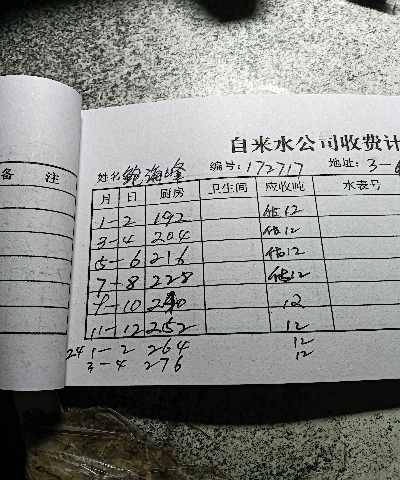 自来水公司收费计
备 注
姓名 鲍海峰 编号:172717 地址: 3-
月 日 厨房 卫生间 应收吨 水表号
1-2 192 估12
3-4 204 估12
5-6 216 估12
7-8 228 估12
9-10 240 12
11-12 252 12
24 1-2 264 12
3-4 276 12